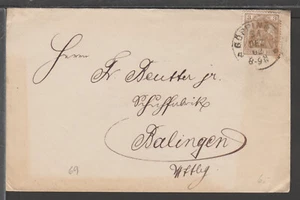 Herrn
Fr. Beutter jr.
Schuhfabrik
Balingen
Wttbg
69
8-9